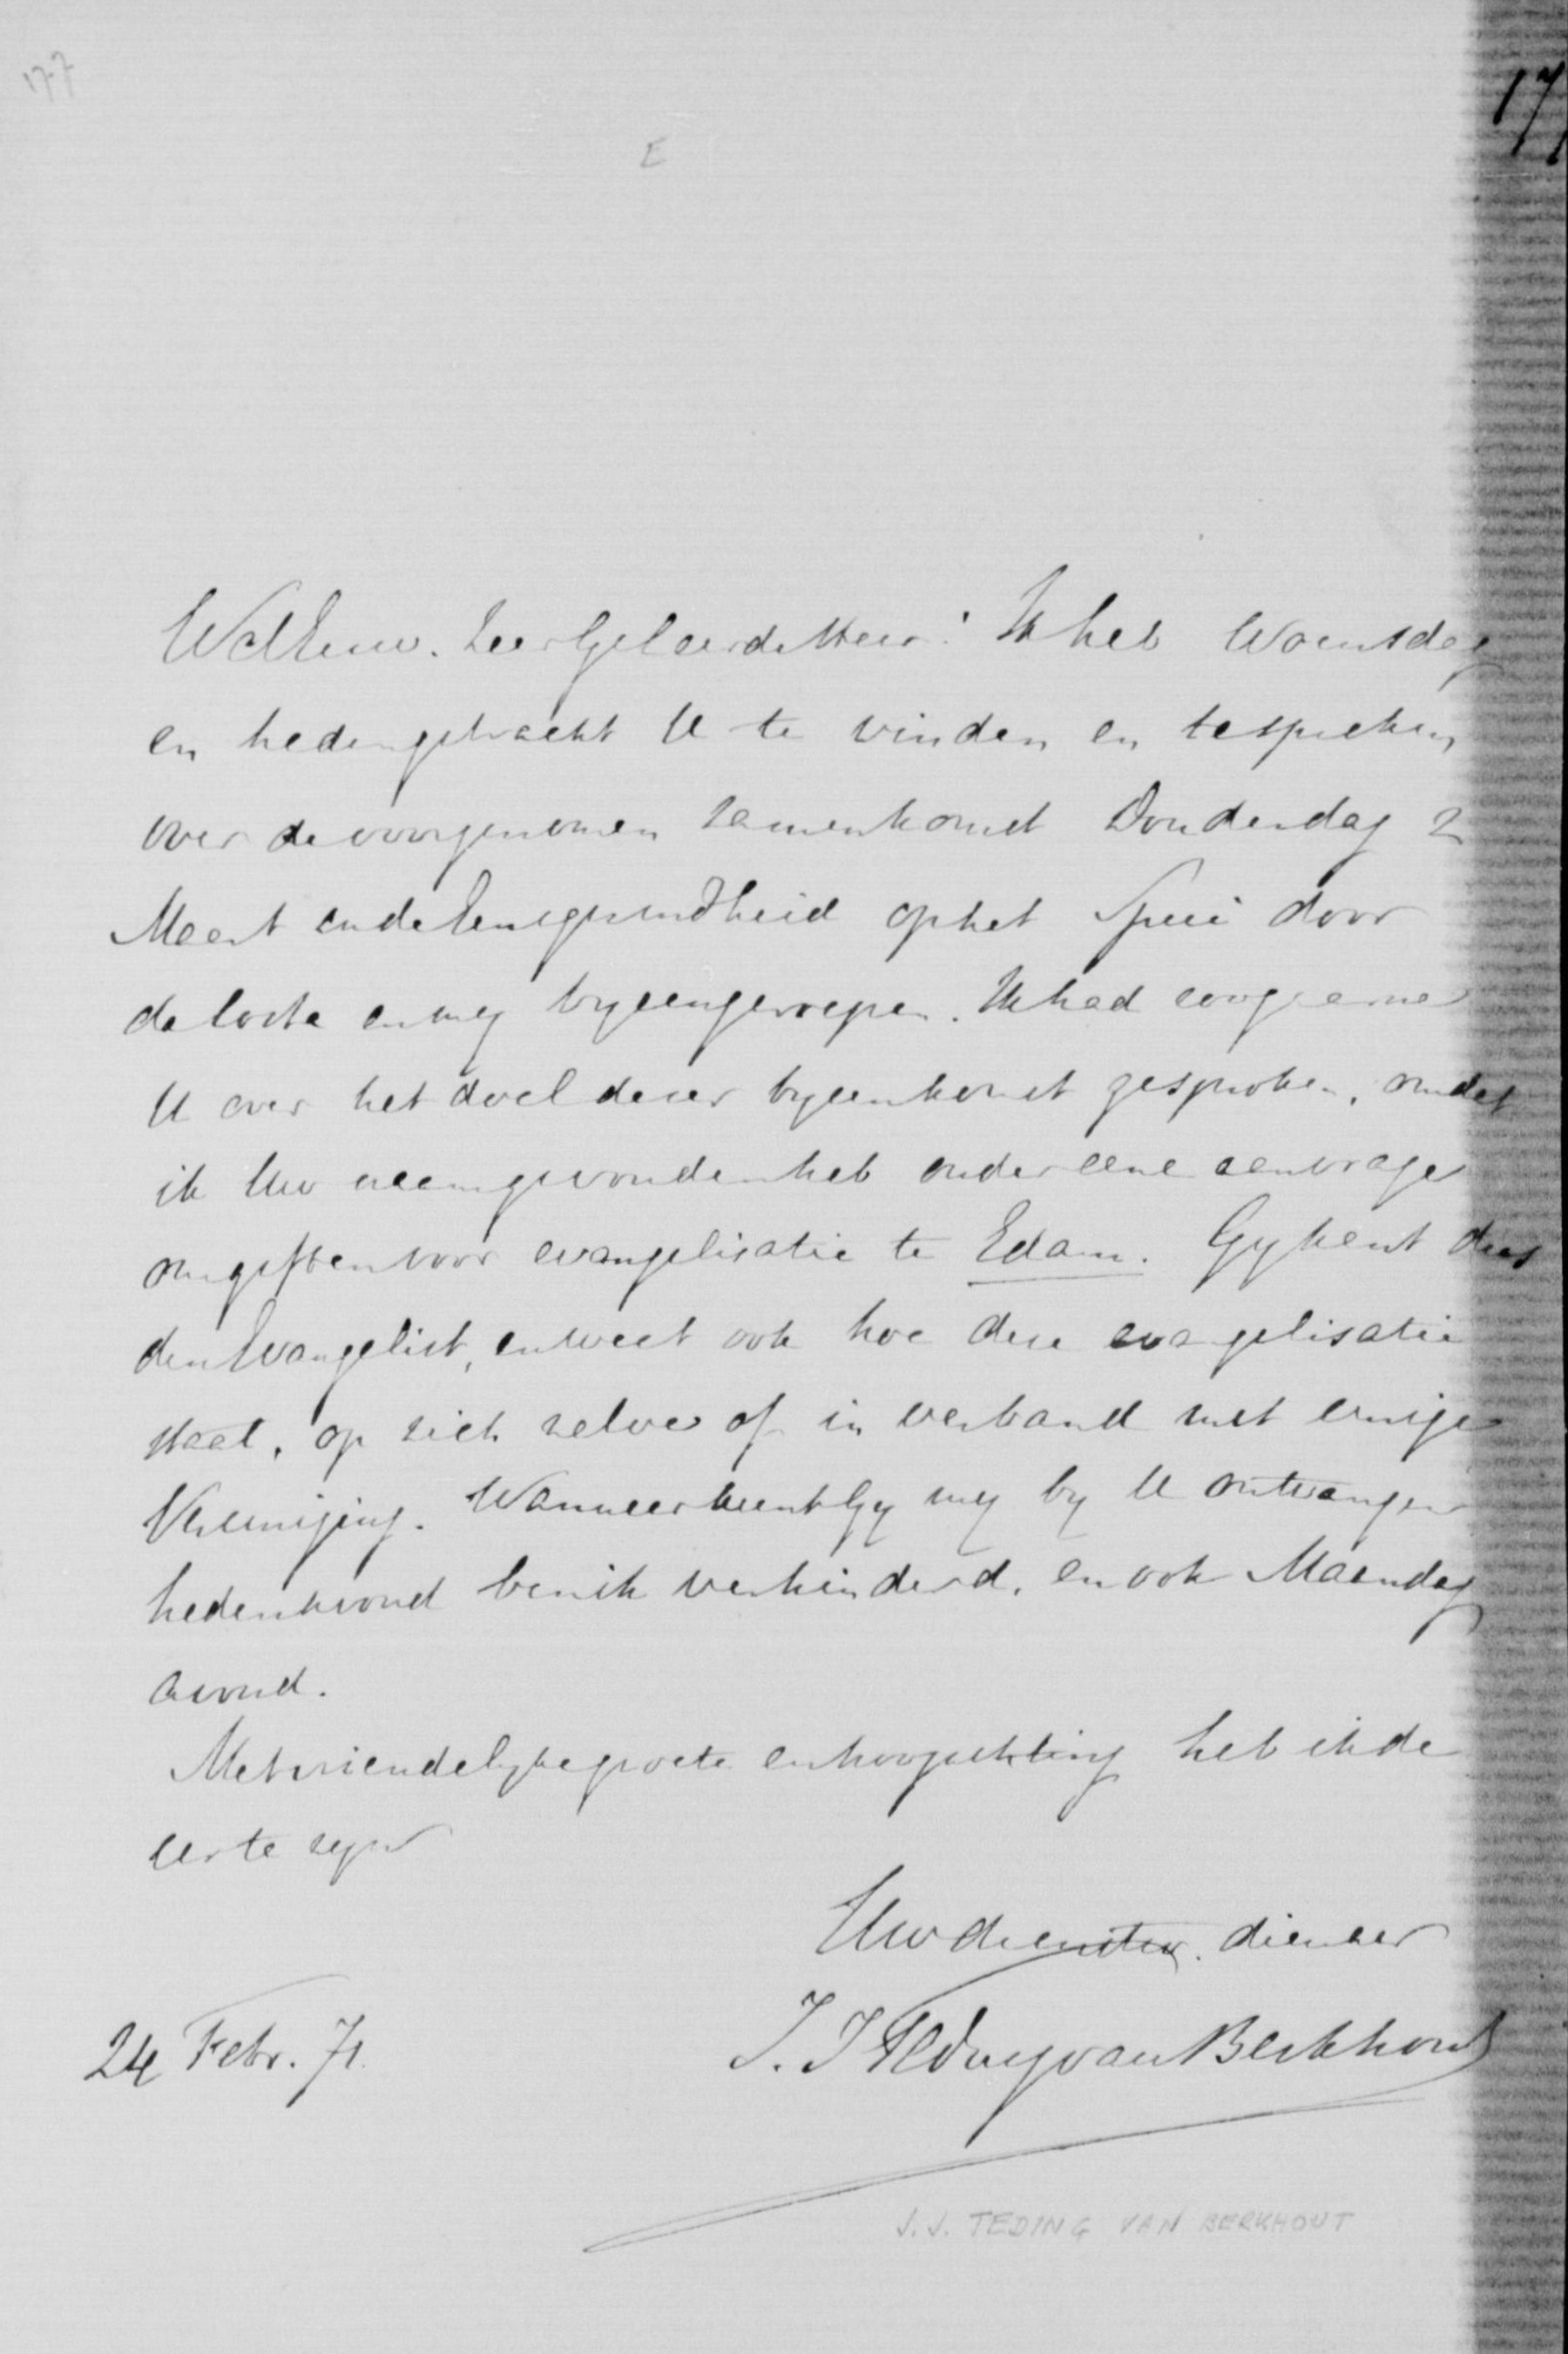 177
17
E
WelEerw. ZeerGeleerde Heer! Ik heb Woensdag
en heden getracht U te vinden en te spreken
over de voorgenomen zamenkomst Donderdag 2
Maart in de Eensgezindheid op het Spui door
da Costa en my byeengeroepen. Ik had zoo gaarne
U over het doel dezer byeenkomst gesproken, omdat
ik Uw naam gevonden heb onder eene aanvrage
om giften voor evangelisatie te Edam. Gy kent dus
den Evangelist, en weet ook hoe deze evangelisatie
staat, op zich zelve of in verband met eenige
Vereeniging. Wanneer kunt Gy my by U ontvangen
heden avond ben ik verhinderd, en ook Maandag
avond.
Met vriendelyke groete en hoogachting heb ik de
eer te zyn
Uw dienstw. dienaar
24 Febr. 71.
J. J. Teding van Berkhout
J. J. TEDING VAN BERKHOUT